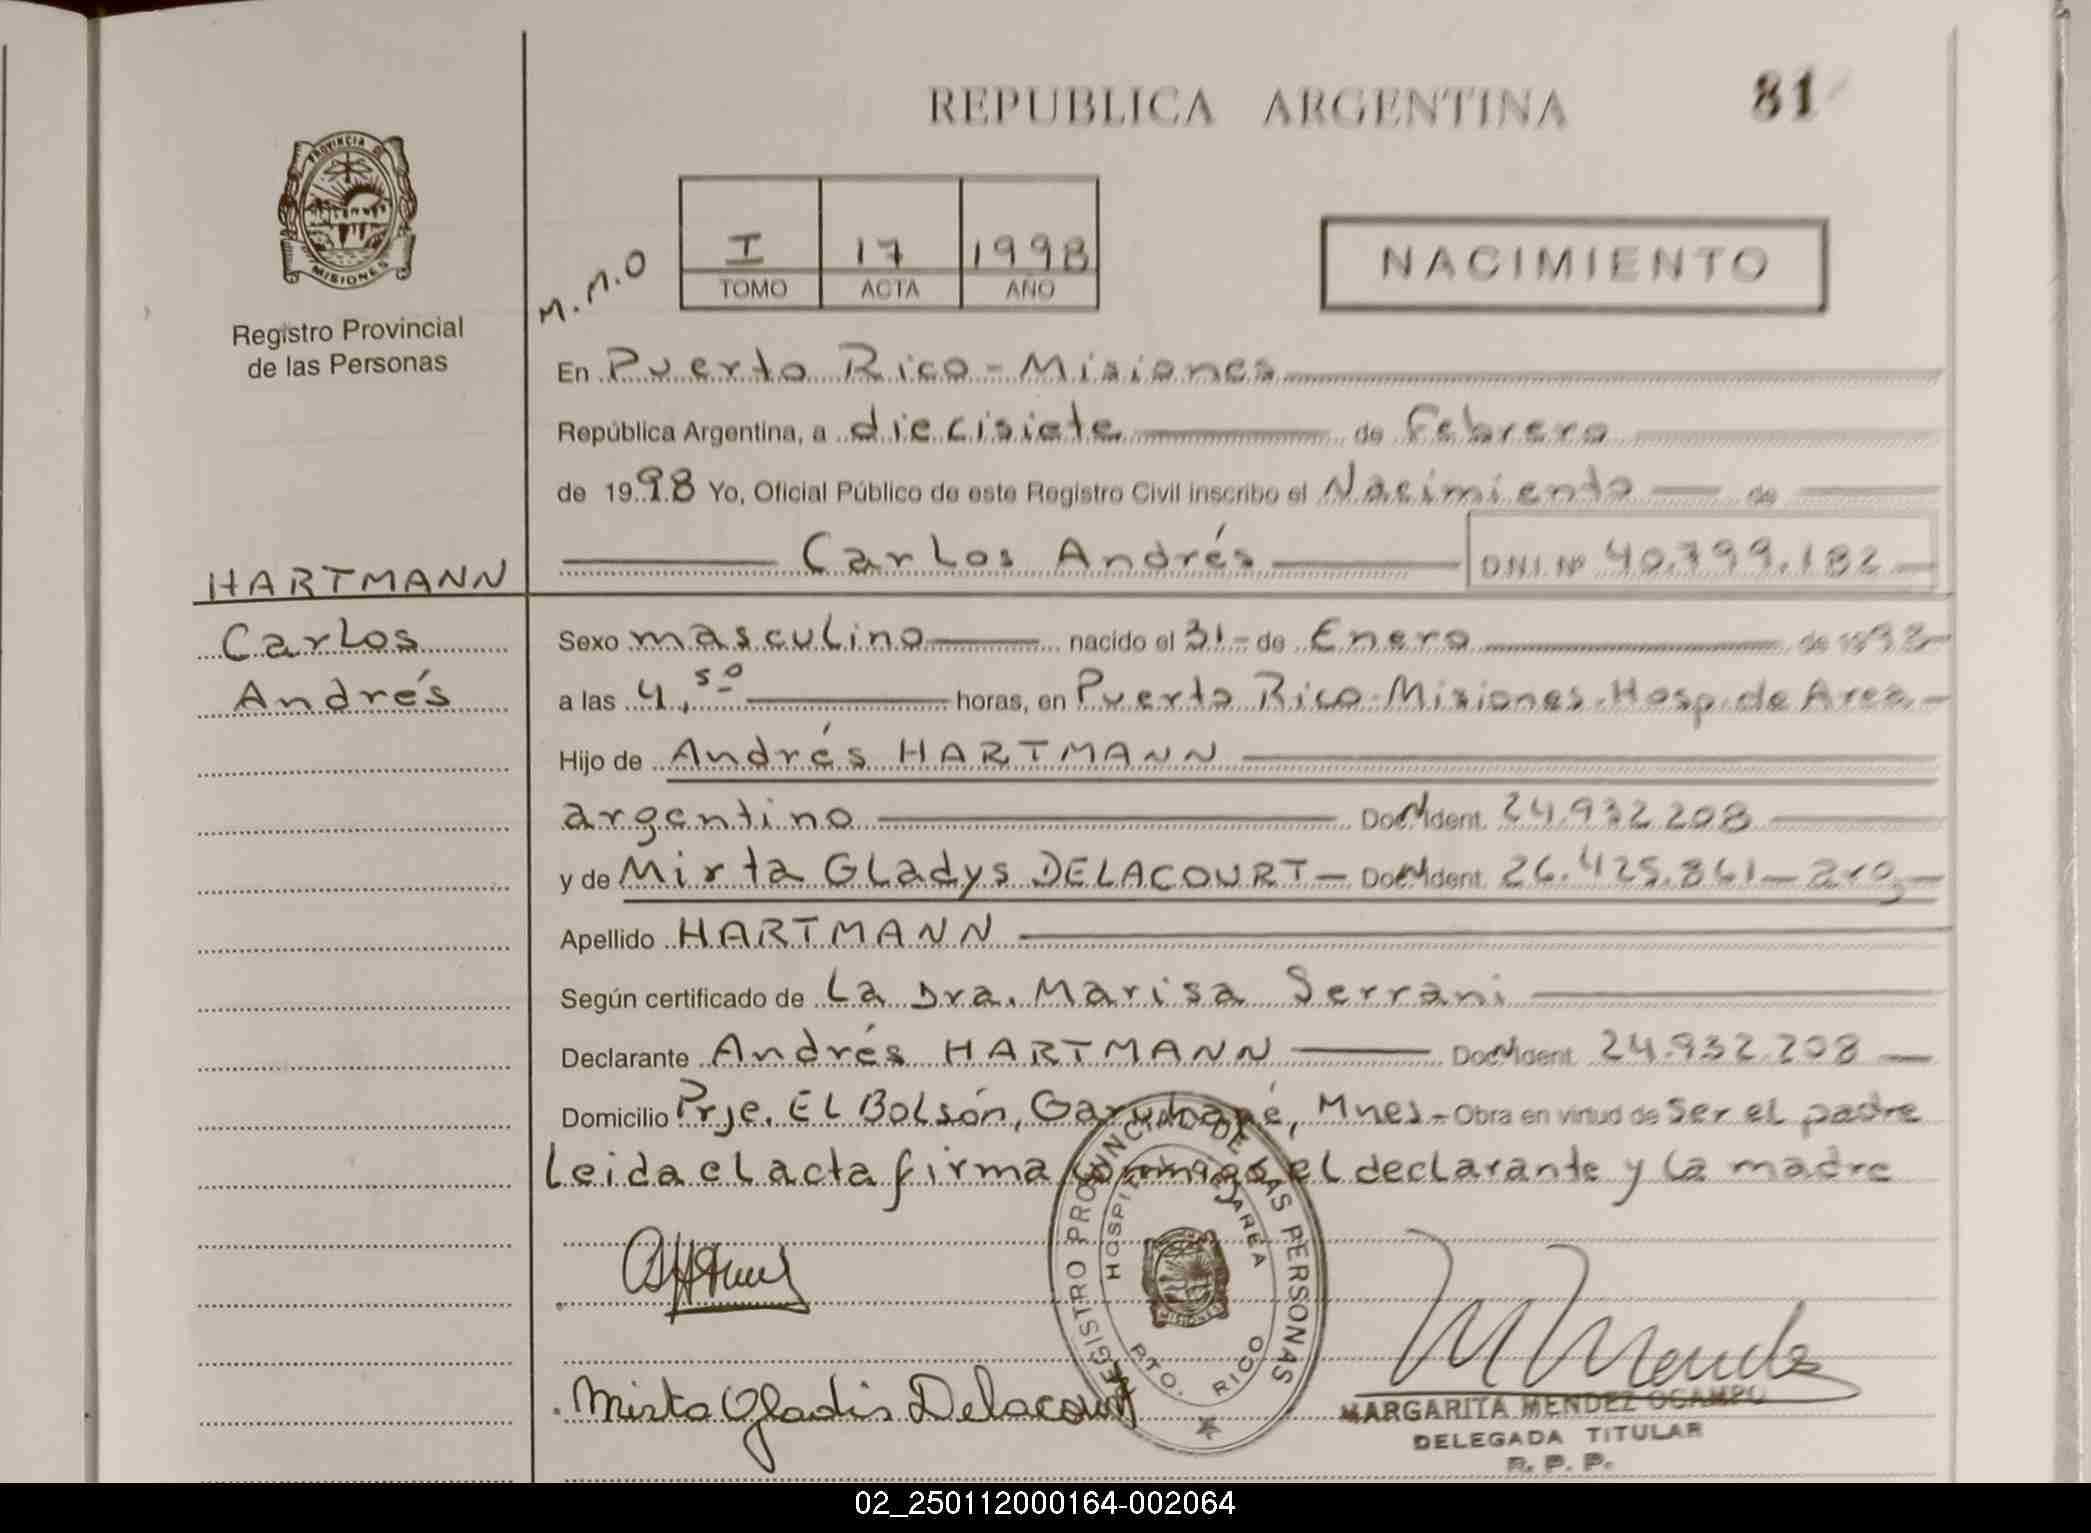 REPUBLICA ARGENTINA
81
PROVINCIA DE
MISIONES
Registro Provincial
de las Personas
M.M.O
I 17 1998
TOMO ACTA AÑO
NACIMIENTO
En Puerto Rico - Misiones
República Argentina, a diecisiete de Febrero
de 1998 Yo, Oficial Público de este Registro Civil inscribo el Nacimiento de
Carlos Andrés DNI Nº 40.799.182
HARTMANN
Carlos
Andrés
Sexo masculino nacido el 31 de Enero de 1998
a las 4,50 horas, en Puerto Rico-Misiones.Hosp.de Area
Hijo de Andrés HARTMANN
argentino Doc Ident. 24.932.208
y de Mirta Gladys DELACOURT Doc Ident. 26.425.861 - arg.
Apellido HARTMANN
Según certificado de La Dra. Marisa Serrani
Declarante Andrés HARTMANN Doc Ident. 24.932.208
Domicilio Prje. El Bolsón, Garuhapé, Mnes - Obra en virtud de Ser el padre
Leida el acta firma conmigo el declarante y la madre
REGISTRO PROVINCIAL DE LAS PERSONAS
HOSPITAL DE AREA
PTO. RICO
MISIONES
Mirta Gladis Delacourt
M Mendez
MARGARITA MENDEZ OCAMPO
DELEGADA TITULAR
R. P. P.
02_250112000164-002064